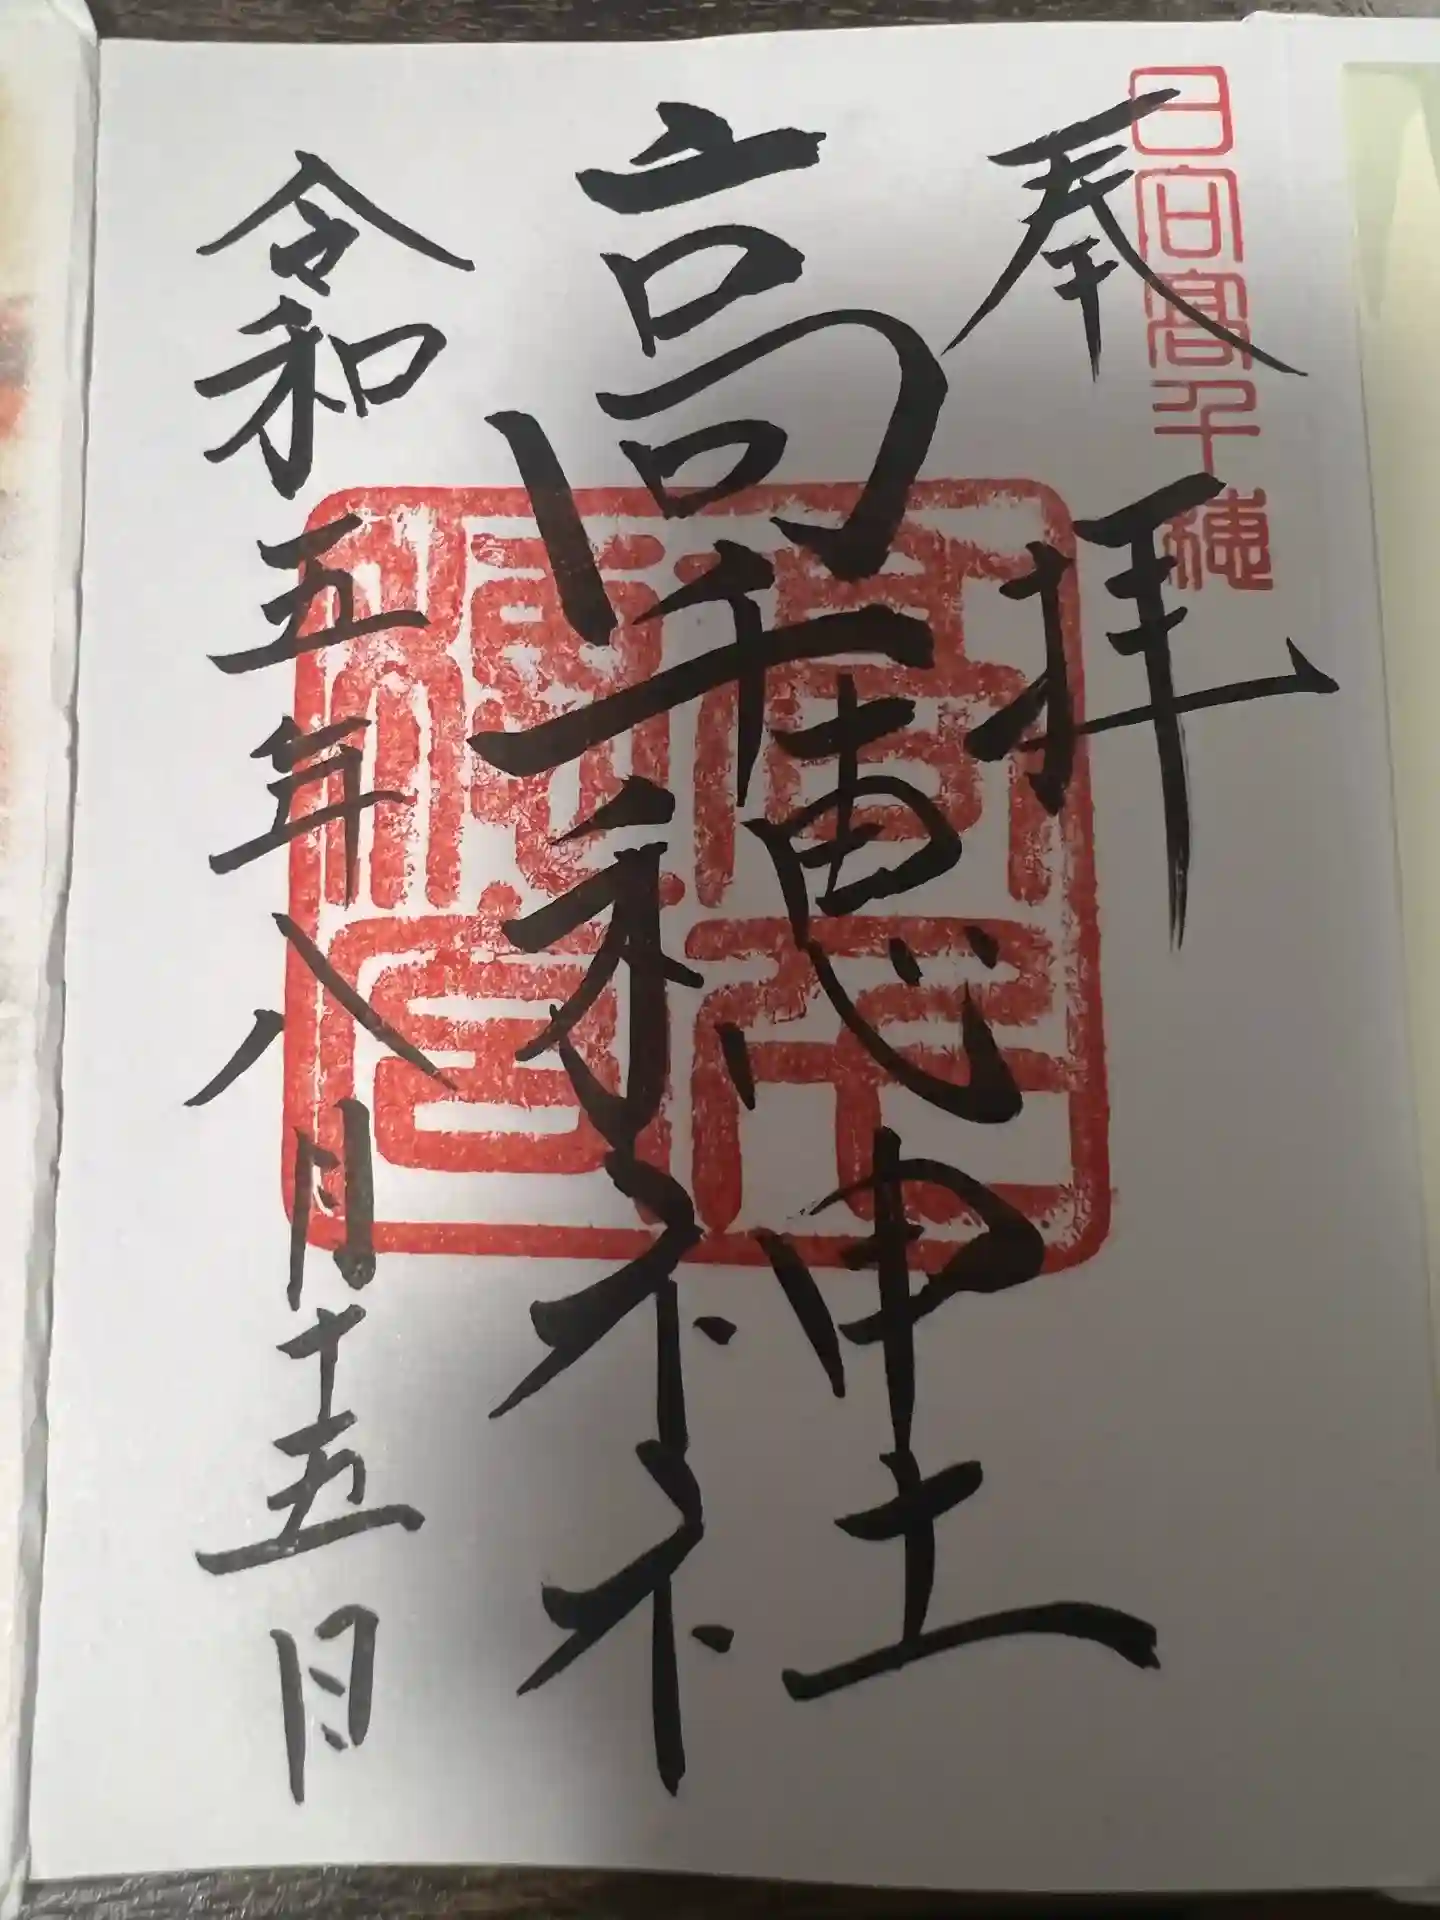 日向高千穂
奉拝
高千穂神社
令和五年八月十五日